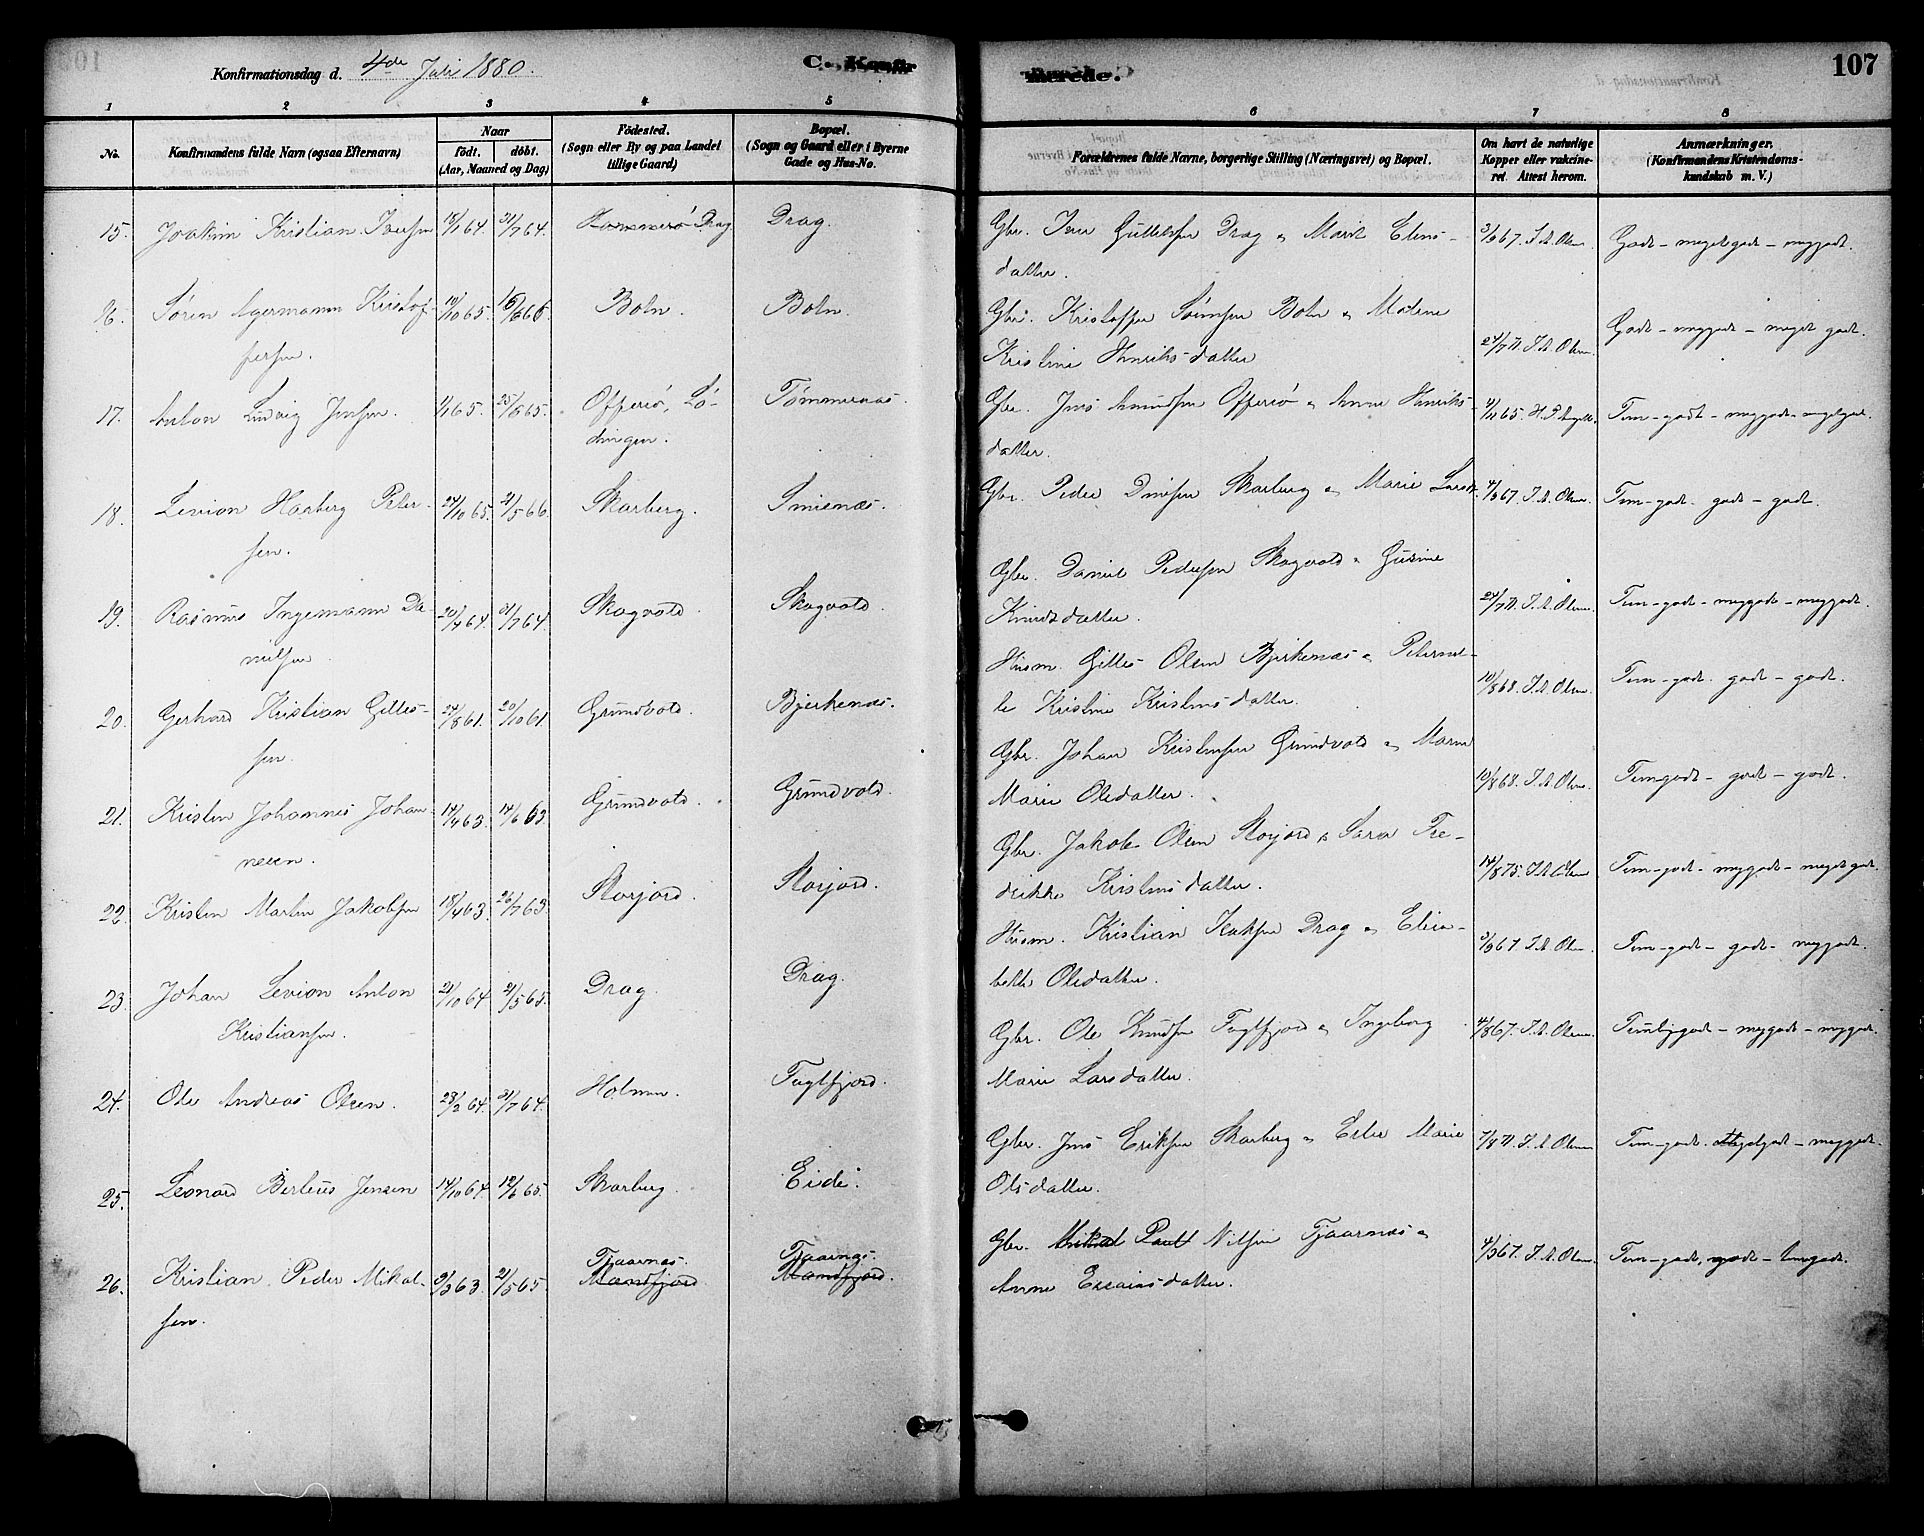 Konfirmationsdag d. 4de Juli 1880.
C. Konfirmerede.
107
1 2 3 4 5 6 7 8
No.
Konfirmandens fulde Navn (ogsaa Efternavn)
Naar
födt. döbt.
(Aar, Maaned og Dag)
Födested.
(Sogn eller By og paa Landet
tillige Gaard)
Bopæl.
(Sogn og Gaard eller i Byerne
Gade og Hus-No.
Forældrenes fulde Navne, borgerlige Stilling (Næringsvei) og Bopæl.
Om havt de naturlige
Kopper eller vakcine-
ret. Attest herom.
Anmærkninger.
(Konfirmandens Kristendoms-
kundskab m. V.)
15. Joakim Kristian Iversen 18/1 64. 31/7 64. Hammerö Drag Drag. Gbr. Iver Gullilsen Drag & Marit Elens-
datter. 3/9 67. I. A. Olsen. Godt - megetgodt - meggodt.
16. Sören Agermann Kristof-
fersen. 10/10 65. Boln. Boln. Gbr. Kristoffer Sörensen Boln & Modine
Kristine Henriksdatter 24/7 71. I. A. Olsen. Godt - meggodt - meget godt.
17. Anton Ludvig Jensen. 1/1 65. 25/5 65. Offersö, Lö-
dingen. Tömmernæs. Gbr. Jens Knudsen Offersö & Anne Henriks-
datter. Tem-godt - meggodt - megetgodt.
18. Levion Hasberg Peter-
sen. 24/10 65. 21/5 66. Skarberg. Smienæs. Gbr. Peder Skarberg & Marie Larsdt. 4/9 67. I. A. Olsen. Tem-godt. godt - godt.
19. Rasmus Ingemann Da-
nielsen 20/4 64. 31/7 64. Skogvold. Skogvold. Gbr. Daniel Pedersen Skogvold & Gurine
Knudsdatter. 24/7 71. I. A. Olsen. Tem-godt - meggodt - meggodt.
20. Gerhard Kristian Gilles-
sen. 24/8 61. 20/10 61. Grundvold. Bjerkenæs. Husm. Gilles Olsen Bjerkenæs & Peternel-
le Kristine Kristensdatter. 10/8 68. I. A. Olsen. Tem-godt. godt - godt.
21. Kristen Johannes Johan-
nesen. 14/4 63. 14/6 63. Grundvold. Grundvold. Gbr. Johan Kristensen Grundvold & Maren
Marie Olsdatter. 10/8 68. I. A. Olsen. Temgodt - godt - godt.
22. Kristen Martin Jakobsen 18/4 63. 26/7 63. Storjord. Storjord. Gbr. Jakob Olsen Storjord & Sara Fre-
drikke Kristensdatter. 14/8 75. I. A. Olsen Tem-godt - meggodt - megetgodt.
23. Johan Levion Anton
Kristiansen. 21/10 64. 21/5 65. Drag. Drag. Husm. Kristian Isaksen Drag & Elisa-
beth Olsdatter. 3/9 67. I. A. Olsen Tem-godt - godt - meggodt.
24. Ole Andreas Olsen. 28/2 64. 31/7 64. Holmen. Fuglfjord. Gbr. Ole Knudsen Fuglfjord & Ingeborg
Marie Larsdatter. 4/8 67. I. A. Olsen. - meggodt - meggodt.
25. Leonard Berteus Jensen 14/10 64. 18/6 65. Skarberg. Eidi. Gbr. Jens Eriksen Skarberg & Marie
Olsdatter. 7/8 71. I. A. Olsen Tem-godt. - meggodt.
26. Kristian Peder Mikal-
sen. 9/3 63. 21/5 65. Tjaarnæs. Mandfjord Tjaarnæs. Mandfjord. Gbr. Mikal Paul Nilsen Tjaarnæs &
Anne Esaiasdatter. 4/9 67. I. A. Olsen. Tem-godt, godt - temgodt.